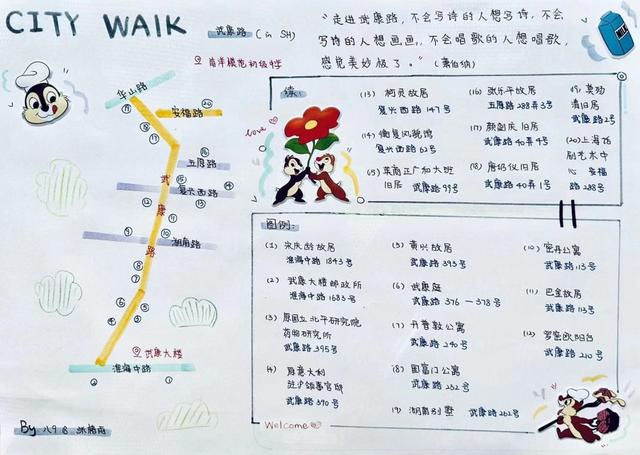 CITY WALK
武康路 (in SH)
“走进武康路,不会写诗的人想写诗,不会
写诗的人想画画,不会唱歌的人想唱歌,
感觉美妙极了。”(萧伯纳)
MILK
华山路
安福路
五原路
复兴西路
湖南路
武康路
武康大楼
淮海中路
love
续:
(13) 柯灵故居
复兴西路 147号
(14) 衡复风貌馆
复兴西路 62号
(15) 莱南正广和大班
旧居 武康路 99号
(16) 张乐平故居
五原路 288弄3号
(17) 颜剑庆旧居
武康路 40弄4号
(18) 唐绍仪旧居
武康路 40弄1号
旧居
武康路 2号
(20) 上海话
剧艺术中
心 安福
路 288号
图例:
(1) 宋庆龄故居
淮海中路 1843号
(2) 武康大楼邮政所
淮海中路 1683号
(3) 原国立北平研究院
药物研究所
武康路 395号
(4) 原意大利
驻沪领事官邸
武康路 390号
(5) 黄兴故居
武康路 393号
(6) 武康庭
武康路 376-378号
(7) 开普敦公寓
武康路 240号
(8) 武康路 232号
(9) 湖南别墅 武康路 262号
(10) 密丹公寓
武康路 113号
(11) 巴金故居
武康路 113号
(12) 罗密欧阳台
武康路 210号
Welcome
By